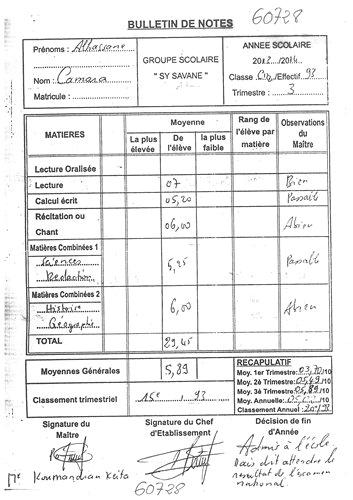 BULLETIN DE NOTES 60728
Prénoms : Alhassane
Nom : Camara
Matricule :
GROUPE SCOLAIRE
" SY SAVANE "
ANNEE SCOLAIRE
2013/2014
Classe /Effectif 93
Trimestre : 3
MATIERES
Moyenne
La plus élevée
De l'élève
la plus faible
Rang de l'élève par matière
Observations du Maître
Lecture Oralisée
Lecture 07 Bien
Calcul écrit 05,20 Passable
Récitation ou
Chant 06,00 A.bien
Matières Combinées 1
Sciences 5,25 Passable
Rédaction
Matières Combinées 2
Histoire 6,00 A.bien
Géographie
TOTAL 29,45
Moyennes Générales 5,89
Classement trimestriel 15e 93
RECAPULATIF
Moy. 1er Trimestre: 03,70/10
Moy. 2è Trimestre: 05,49/10
Moy. 3è Trimestre: 05,89/10
Moy. Annuelle: /10
Classement Annuel: 20e/93
Signature du
Maître
Signature du Chef
d'Etablissement
Décision de fin
d'Année
Admis à l'école
Mais doit attendre le
resultat de l'examen
national.
Mr Koumandian Keita
60728